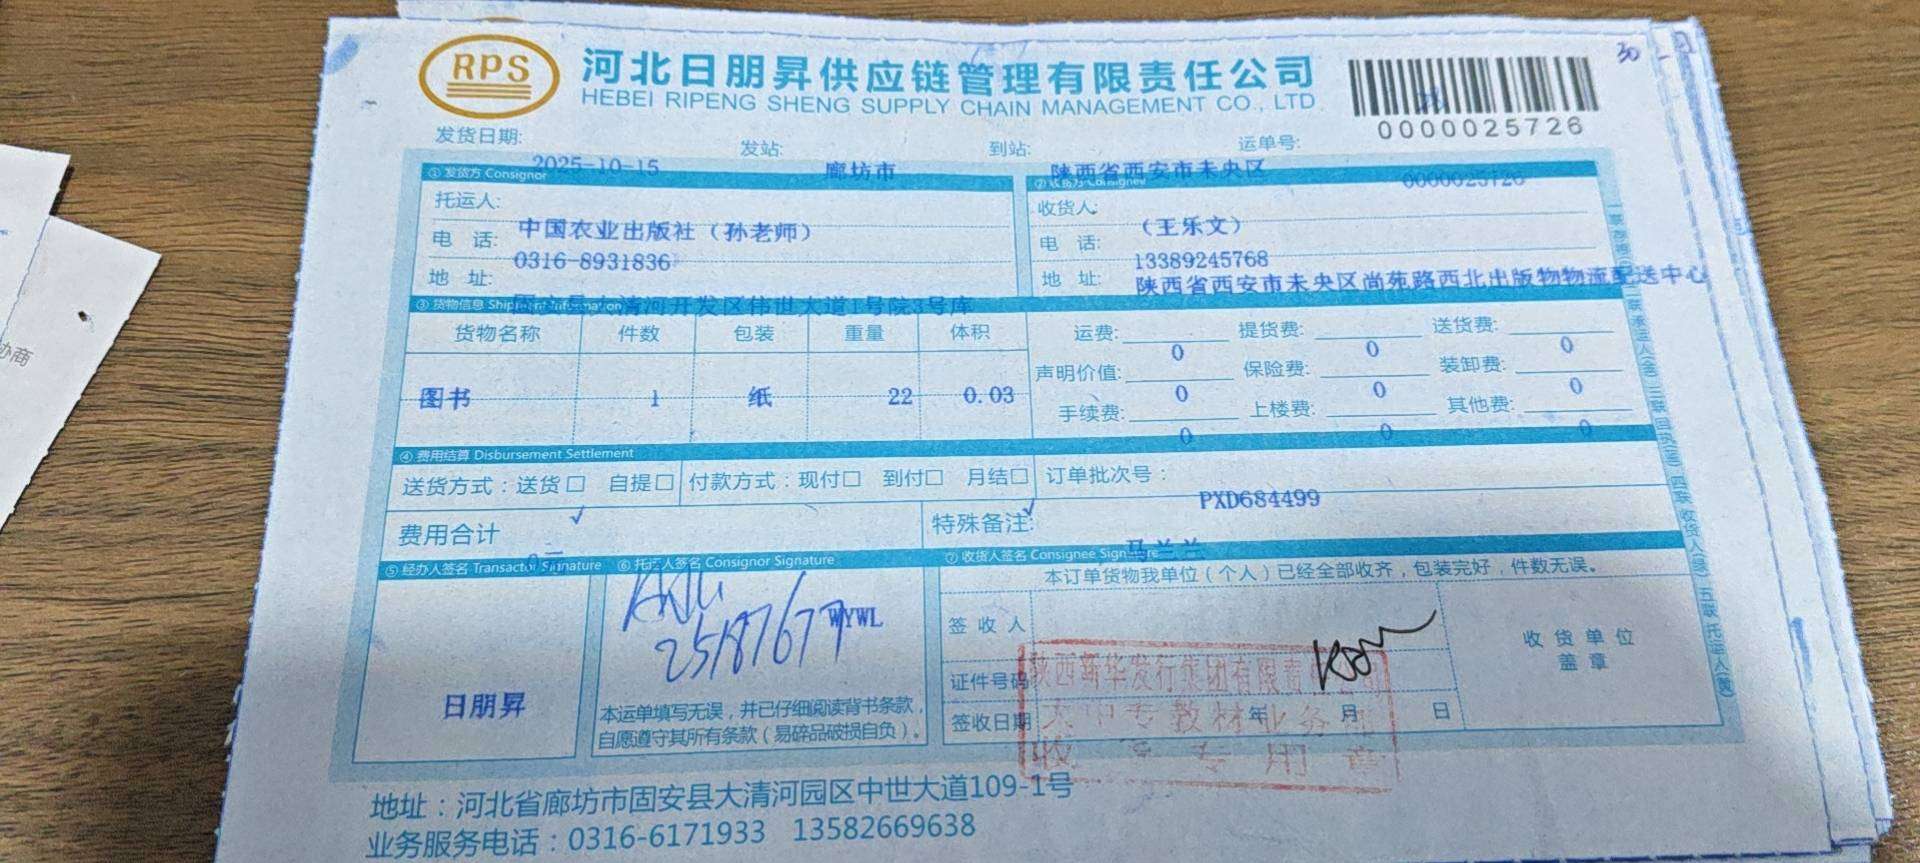 RPS
河北日朋昇供应链管理有限责任公司
HEBEI RIPENG SHENG SUPPLY CHAIN MANAGEMENT CO., LTD
0000025726
30
发货日期: 2025-10-15 发站: 廊坊市 到站: 陕西省西安市未央区 运单号: 0000025726
① 发货方 Consignor
② 收货方 Consignee
托运人: 中国农业出版社（孙老师）
收货人: （王乐文）
电 话: 0316-8931836
电 话: 13389245768
地 址: 清河开发区伟世大道1号院3号库
地 址: 陕西省西安市未央区尚苑路西北出版物物流配送中心
③ 货物信息 Shipment Information
货物名称 件数 包装 重量 体积
图书 1 纸 22 0.03
运费: 0 提货费: 0 送货费: 0
声明价值: 0 保险费: 0 装卸费: 0
手续费: 0 上楼费: 0 其他费: 0
④ 费用结算 Disbursement Settlement
送货方式：送货□ 自提□ 付款方式：现付□ 到付□ 月结□ 订单批次号：PXD684499
√ √
费用合计 0元 特殊备注: 马兰兰
⑤ 经办人签名 Transactor Signature
⑥ 托运人签名 Consignor Signature
⑦ 收货人签名 Consignee Signature
本订单货物我单位（个人）已经全部收齐，包装完好，件数无误。
WYWL
签 收 人
收 货 单 位
盖 章
证件号码
签收日期 年 月 日
日朋昇
本运单填写无误，并已仔细阅读背书条款，
自愿遵守其所有条款（易碎品破损自负）。
陕西新华发行集团有限责任公司
大中专教材业务
收 专用章
地址：河北省廊坊市固安县大清河园区中世大道109-1号
业务服务电话：0316-6171933 13582669638